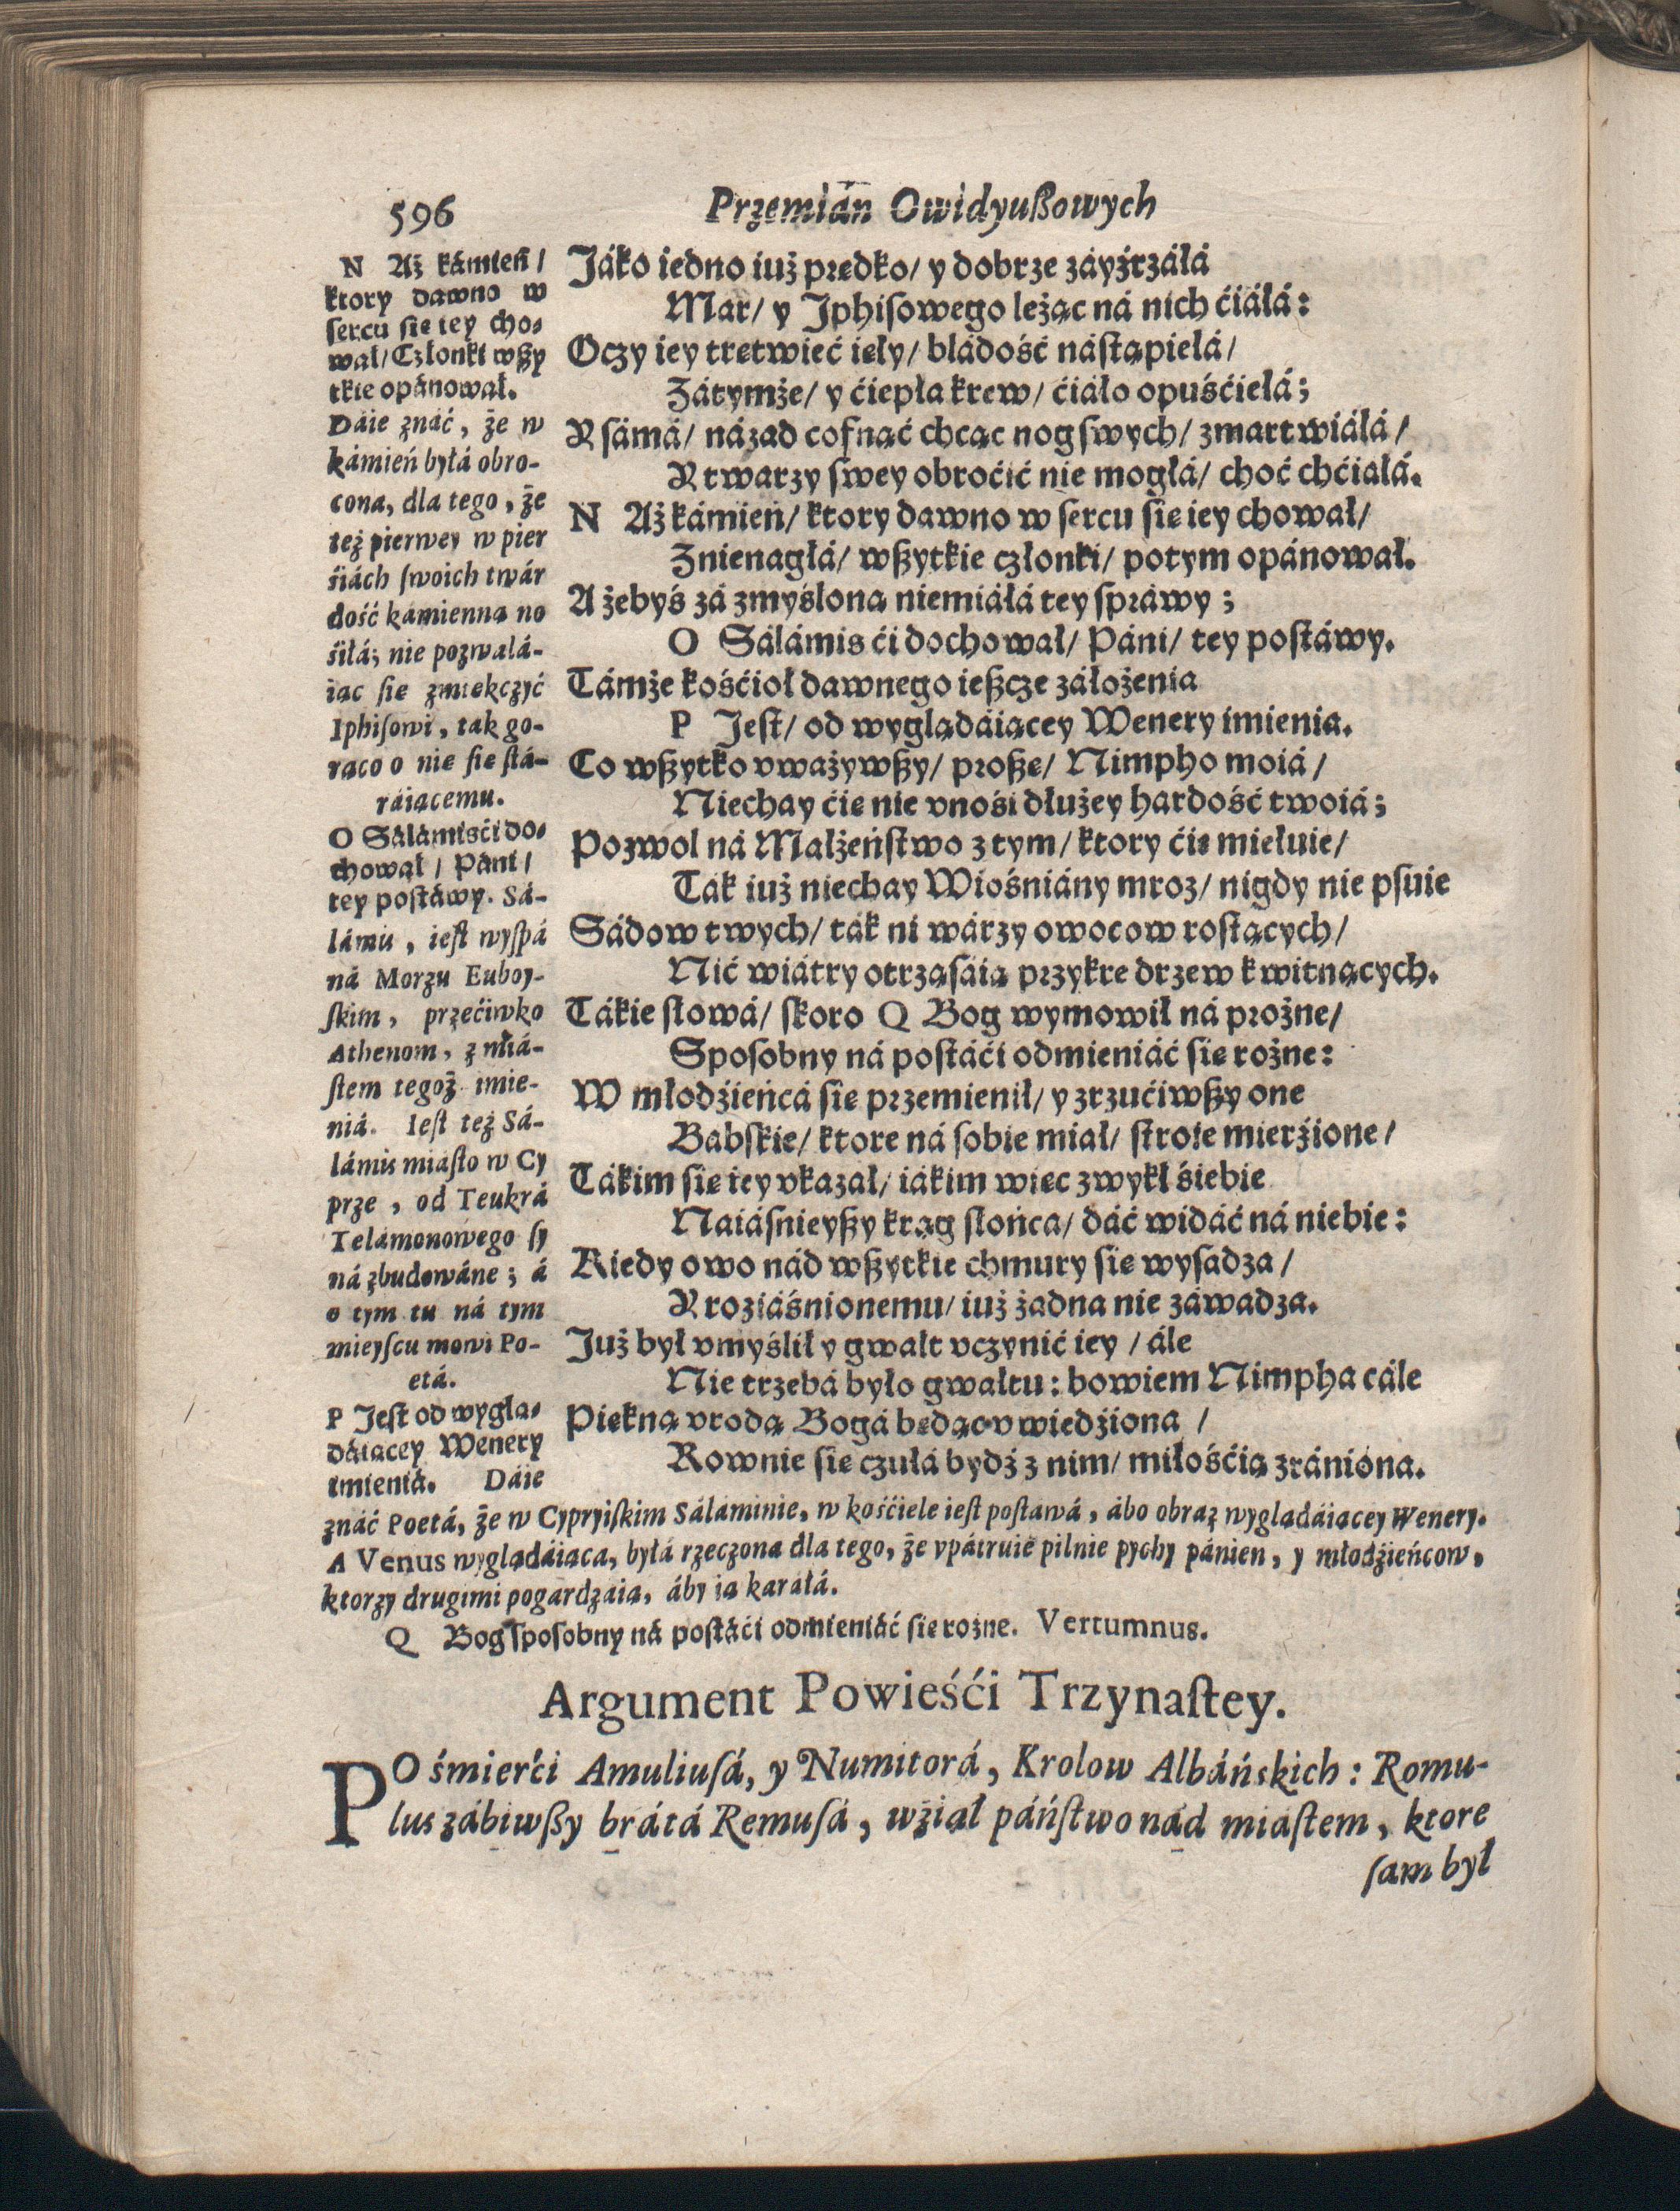 596
Przemián Owidyußowych
Jáko iedno iuż prędko/ y dobrze záyźrzáłá
Mar/ y Jphisowego leżąc ná nich ćiáłá:
Oczy iey trętwieć ięły/ bládość nástąpiełá/
Zátymże/ y ćiepła krew/ ćiáło opuśćiełá;
A sámá/ názad cofnąć chcąc nog swych/ zmartwiáłá/
A twarzy swey obroćić nie mogłá/ choć chćiałá.
N Aż kámień/ ktory dawno w sercu się iey chował/
Znienagłá/ wßytkie członki/ potym opánował.
A żebyś zá zmyśloną niemiáłá tey spráwy;
O Sálámis ći dochował/ Páni/ tey postáwy.
Támże kośćioł dawnego ießcze záłożenia
P Jest/ od wyglądáiącey Wenery imienia.
Co wßytko vważywßy/ proßę/ Nimpho moiá/
Niechay ćię nie vnośi dłużey hardość twoiá;
Pozwol ná Małżeństwo z tym/ ktory ćię miełuie/
Ták iuż niechay Wiośniány mroz/ nigdy nie psuie
Sádow twych/ ták ni wárzy owocow rostących/
Nić wiátry otrząsáią przykre drzew kwitnących.
Tákie słowá/ skoro Q Bog wymowił ná prożne/
Sposobny ná postáći odmieniáć się rożne:
W młodźieńcá się przemienił/ y zrzućiwßy one
Babskie/ ktore ná sobie miał/ stroie mierźione/
Tákim się iey vkazał/ iákim więc zwykł śiebie
Naiásnieyßy krąg słońca/ dáć widáć ná niebie:
Kiedy owo nád wßytkie chmury się wysadza/
A roziáśnionemu/ iuż żadna nie záwadza.
Już był vmyślił y gwałt vczynić iey/ ále
Nie trzebá było gwałtu: bowiem Nimpha cále
Piękną vrodą Bogá będąc vwiedźiona/
Rownie się czułá bydź z nim/ miłośćią zrániona.
N Aż kámień/
ktory dawno w
sercu się iey cho-
wał/ Członki wßy
tkie opánował.
Dáie znáć, że w
kámień byłá obro-
cona, dla tego, że
też pierwey w pier
śiách swoich twár
dość kámienną no
śiłá; nie pozwalá-
iąc się zmiękczyć
Iphisowi, tak go-
rąco o nię się stá-
ráiącemu.
O Sálámis ći do-
chował/ Páni/
tey postáwy. Sá-
lámis, iest wyspá
ná Morzu Euboy-
skim, przećiwko
Athenom, z miá-
stem tegoż imie-
niá. Iest też Sá-
lámis miásto w Cy
prze, od Teukrá
Telámonowego sy
ná zbudowáne; á
o tym tu ná tym
mieyscu mowi Po-
etá.
P Jest od wyglą-
dáiącey Wenery
imieniá. Dáie
znáć Poetá, że w Cypryiskim Sálaminie, w kośćiele iest postawá, ábo obraz wyglądáiącey Wenery.
A Venus wyglądáiąca, byłá rzeczona dla tego, że vpátruie pilnie pychy pánien, y młodźieńcow,
ktorzy drugimi pogardzáią, áby ią karáłá.
Q Bog sposobny ná postáći odmieniáć się rożne. Vertumnus.
Argument Powieśći Trzynastey.
PO śmierći Amuliusá, y Numitorá, Krolow Albáńskich: Romu-
lus zábiwßy brátá Remusá, wźiął páństwo nád miástem, ktore
sam był